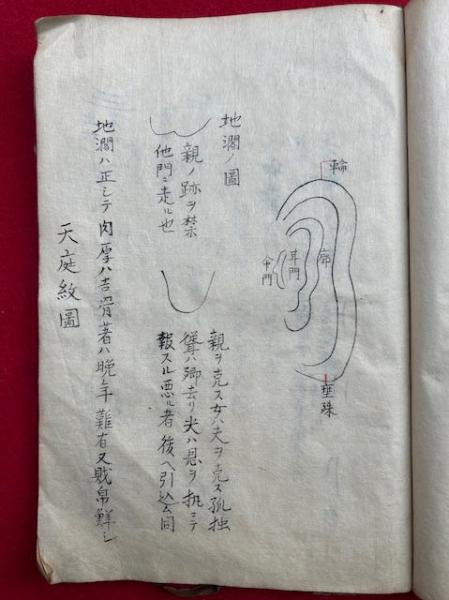 輪
廓
耳門
命門
垂珠
地濶ノ圖
親ノ跡ヲ禁
他門ニ走ル也
親ヲ克ス女ハ夫ヲ克ス孤独
ハ郷去リ尖ハ恩ヲ
報スル悪ル者後ヘ引込ム同
地濶ハ正シテ肉厚ハ吉滑著ハ晩年難有又財帛鮮シ
天庭紋圖